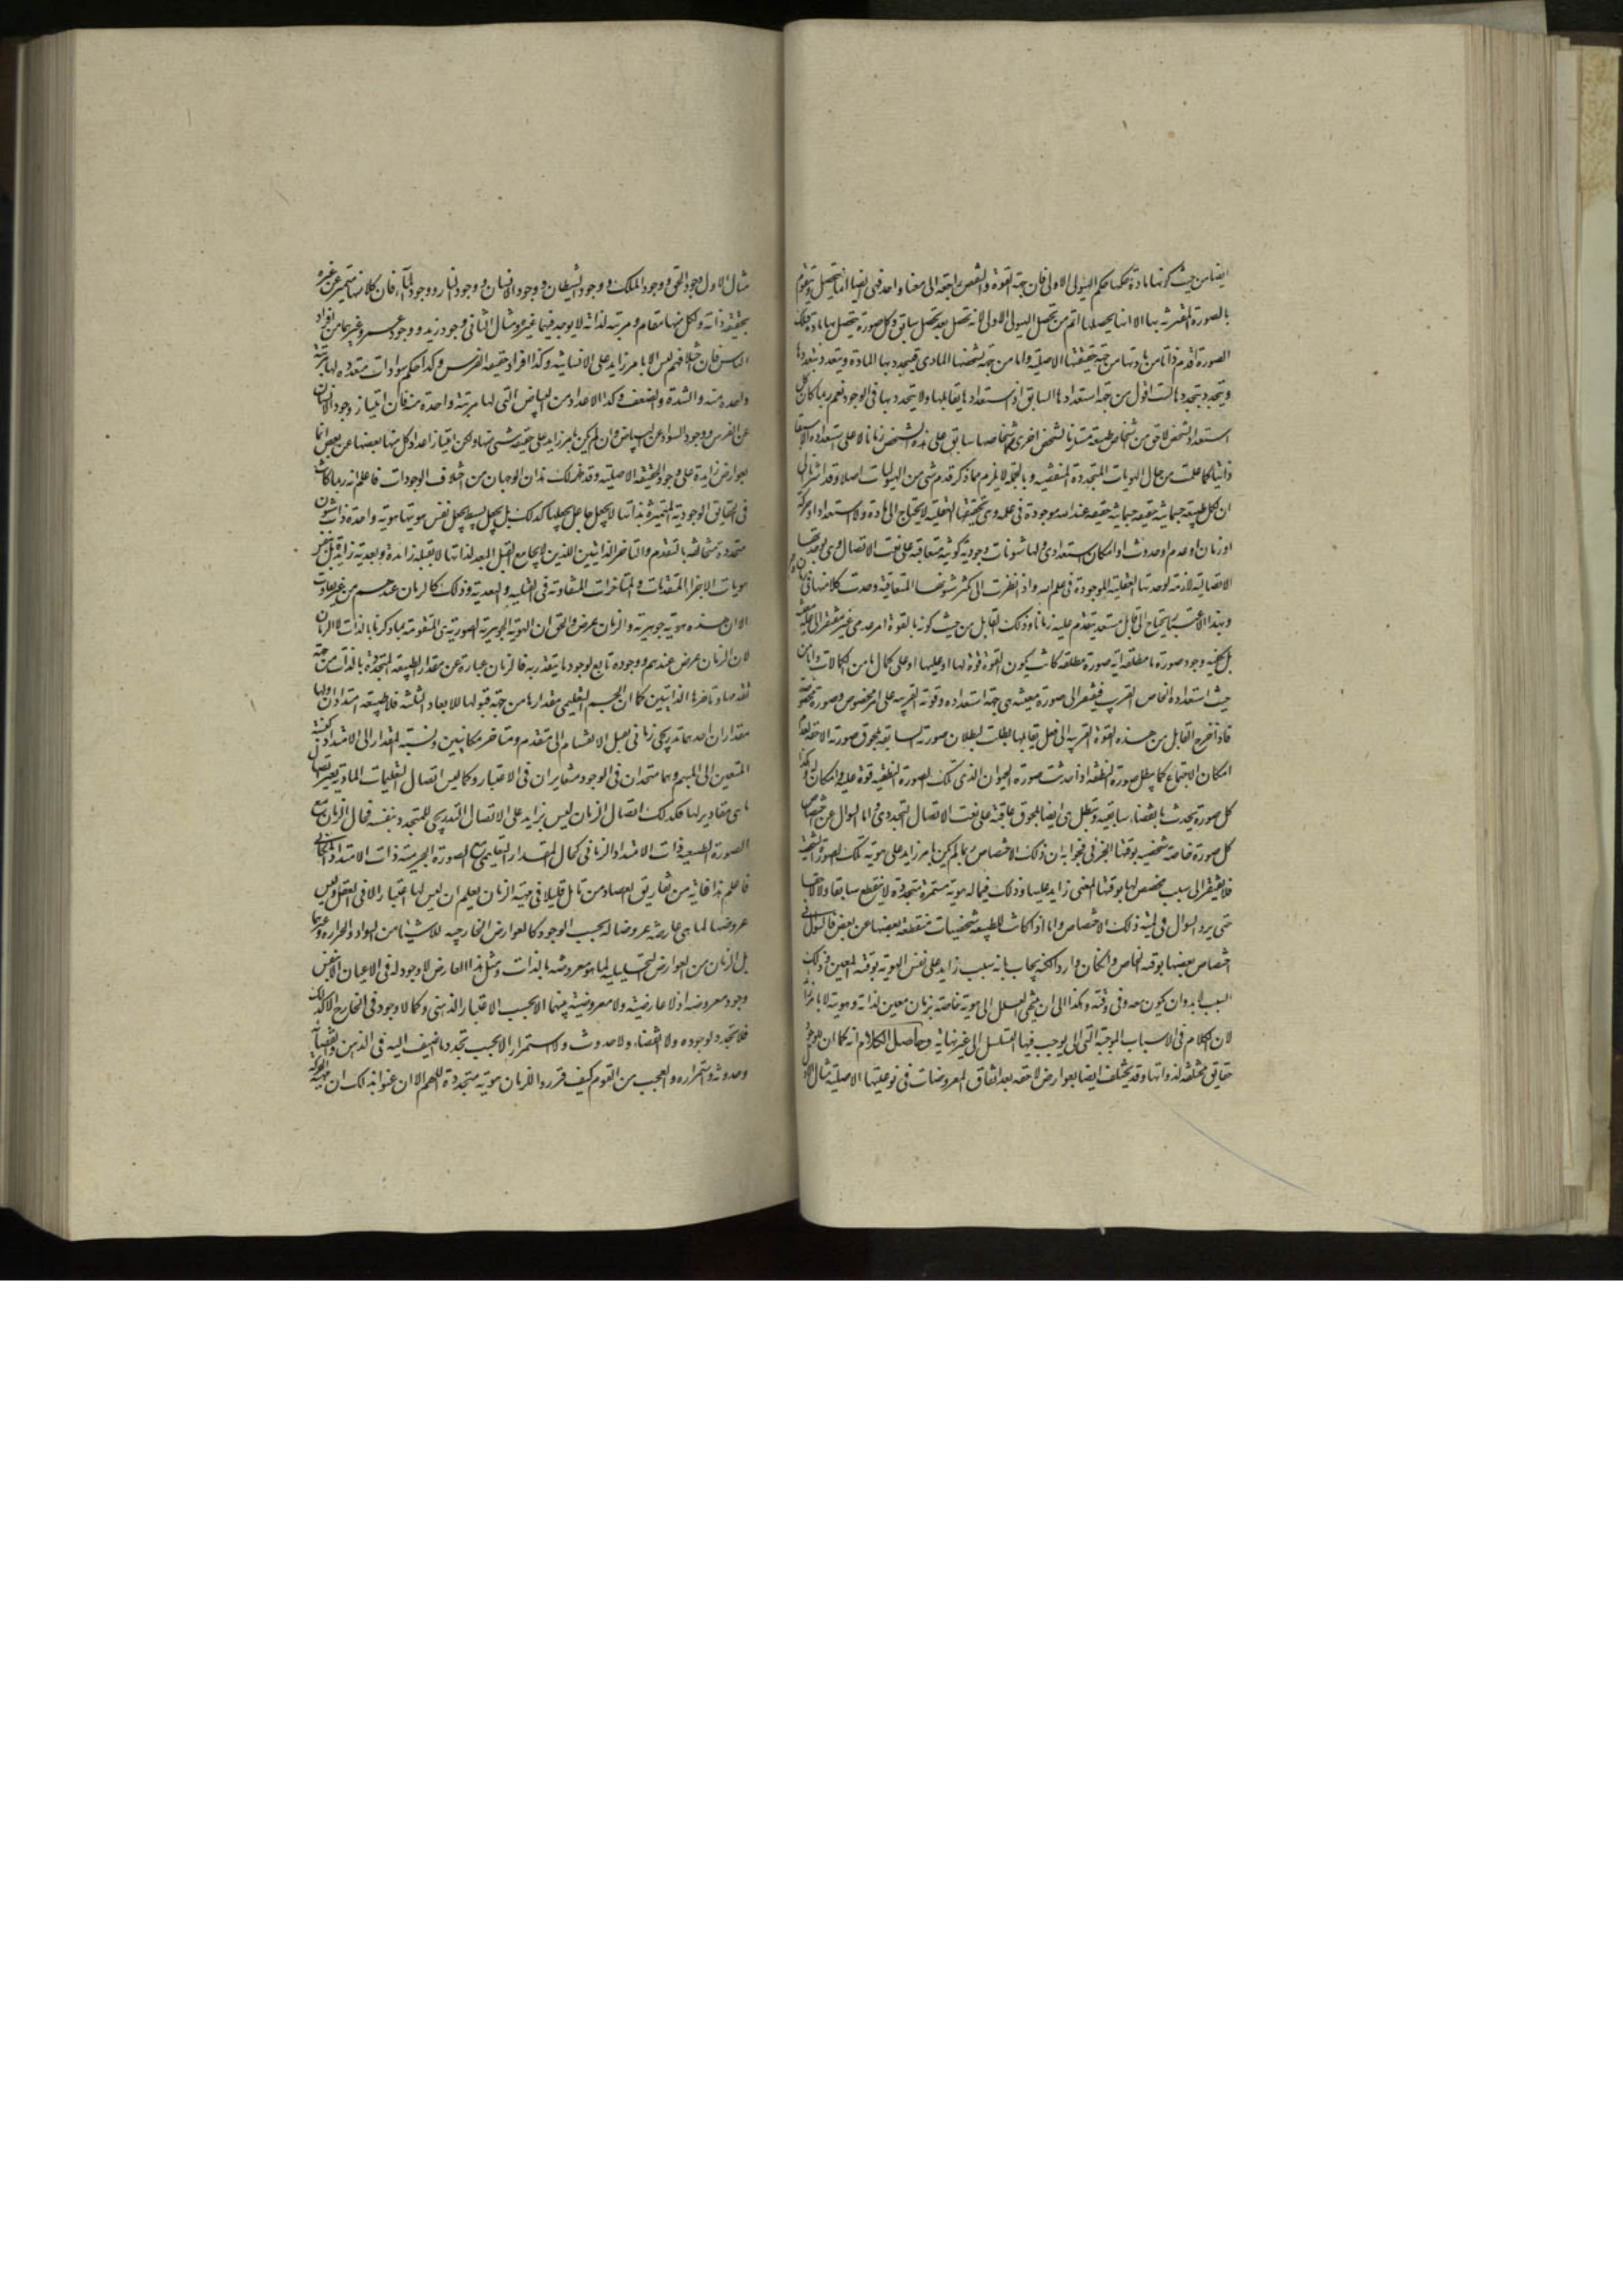 ايضا من حيث كونها مادة حكمها حكم الهيولى الاولى فان جهة القوة والنقص راجعة الى معنا واحد فهى ايضا انما يتحصل ويتقوم
بالصورة المقترنة بها الا انها تحصلها اتم من تحصل الهيولى الاولى لانه تحصل بعد تحصل سابق وكل صورة يتحصل بها مادة فتلك
الصورة اقدم ذاتا من مادتها من جهة حقيقتها الاصلية واما من جهة تشخصها المادى فيتجدد بها المادة ويتعدد بتعددها
ويتجدد بتجددها لست اقول من جهة استعدادها السابق اذ استعدادها يقابلها ولا يتحد بها فى الوجود نعم ربما كان كل
استعداد لشخص لاحق من اشخاص طبيعة مستلزما لشخص اخرى شخاصها سابق على هذا الشخص زمانا لا على استعداده الا سبقا
ذاتيا كما علمت من حال الهويات المتجددة المنقضية وبالجملة لا يلزم مما ذكر قدم شى من الهيوليات اصلا وقد اشرنا الى
ان لكل طبيعة جسمانية حقيقة عند الله موجودة فى علمه وهى بحقيقتها العقلية لا يحتاج الى مادة ولا استعداد او حركة
او زمان او عدم او حدوث او امكان استعدادى ولها شئونات وجودية كونية متعاقبة على نعت الاتصال وهى بوحدتها
الاتصالية لازمة لوحدتها العقلية الموجودة فى علم الله واذا نظرت الى تكثر شئونها المتعاقبة وجدت كلا منها فى
وبهذا الاعتبار يحتاج الى قابل مستعد يتقدم عليه زمانا وذلك القابل من حيث كونه بالقوة امر عدمى غير مفتقر الى علة معينة
بل يكفيه وجود صورة ما مطلقة اية صورة مطلقة كانت يكون القوة قوة لها او عليها او على كمال ما من الكمالات واما من
حيث استعداده الخاص القريب فيفتقر الى صورة معينة هى جهة استعداده وقوته القريبة على امر مخصوص وصورة مخصوصة
فاذا خرج القابل من هذه القوة القريبة الى فعل يقابلها بطلت لبطلان صورته السابقة بلحوق صورته اللاحقة لعدم
امكان الاجتماع كما يبطل صورة النطفة اذا حدثت صورة الحيوان الذى تلك الصورة النطفية قوة عليه وامكان له وهكذا
كل صورة يحدث بانقضاء سابقته وتبطل هى ايضا بلحوق عاقبته على نعت الاتصال التجددى واما السوال عن اختصاص
كل صورة خاصة شخصية بوقتها الجزئى فجوابه ان ذلك الاختصاص ربما لم يكن بامر زايد على هوية تلك الصورة الشخصية
فلا يفتقر الى سبب مخصص لها بوقتها المعنى زايد عليها وذلك فيما له هوية مستمرة متجددة لا ينقطع سابقا ولا لاحقا
حتى يرد السوال فى لمية ذلك الاختصاص واما اذا كانت للطبيعة شخصيات منقطعة بعضها عن بعض فالسوال فى
اختصاص بعضها بوقته الخاص وان كان وارد الكنه يجاب بانه بسبب زايد على نفس الهوية بوقته المعين وذلك
السبب لابد وان يكون معه وفى وقته وهكذا الى ان ينتهى العلل الى هوية خاصة بزمان معين لذاته وهويته لا بامر زايد
لان الكلام فى الاسباب الموجبة التى يوجب فيها التسلسل الى غير نهاية وحاصل الكلام انه كما ان الموجود
حقايق مختلفة لذواتها وقد يختلف ايضا بعوارض لاحقه بعد اتفاق المعروضات فى نوعيتها الاصلية مثال الاول
مثال الاول وجود الحق ووجود الملك ووجود الشيطان ووجود الانسان ووجود النار ووجود الماء فان كلا منها متميز عن غيره
بحقيقة ذاته ولكل منها مقام ومرتبة لذاته لا يوجد فيها غيره ومثال الثانى وجود زيد ووجود عمرو وغيرهما من افراد
الناس فان اختلافهم ليس الا بامر زايد على الانسانية وكذا افراد حقيقة الفرس وكذا حكم سوادات متعددة لها مرتبة
واحدة منه والشدة والضعف وكذا الاعداد من البياض التى لها مرتبة واحدة منه فان امتياز وجود الانسان
عن الفرس ووجود السواد عن البياض وان لم يكن بامر زايد على حقيقة شى منها ولكن امتياز اعداد كل منها بعضها عن بعض انما
بعوارض زايدة على وجود الحقيقة الاصلية وقد ظهر لك هذان الوجهان من اختلاف الوجودات فاعلم انه ربما كانت
فى الحقايق الوجودية المتميزة بذاتها لا بجعل جاعل يجعلها كذلك بل بجعل بسيط يجعل نفس هويتها هوية واحدة ذات شئون
متجددة متخالفة بالتقدم والتاخر الذاتيين اللذين لا يجامع القبل البعد لذاتها لا بقبلية زايدة وبعدية زايدة بل بنفس
هويات الاجزاء المتقدمات والمتاخرات المتفاوتة فى القبلية والبعدية وذلك كالزمان عندهم من غير تفاوت
الا ان هذه هوية جوهرية والزمان عرض والحق ان الهوية الجوهرية الصورية هى المنعوتة بما ذكرنا بالذات لا الزمان
لان الزمان عرض عندهم ووجوده تابع لوجود ما يتقدر به فالزمان عبارة عن مقدار الطبيعة المتجددة بالذات من جهة
تقدمها وتاخرها الذاتيين كما ان الجسم التعليمى مقدارها من جهة قبولها للابعاد الثلثة فللطبيعة امتدادان ولها
مقداران احدهما تدريجى زمانى يقبل الانقسام الى متقدم ومتاخر مكانيين ونسبة المقدار الى الامتداد كنسبة
المتعين الى المبهم وهما متحدان فى الوجود متغايران فى الاعتبار وكما ليس اتصال التعليمات المادية بغير اتصال
ماهى مقادير لها فكذلك اتصال الزمان ليس بزايد على الاتصال التدريجى للمتجدد بنفسه فحال الزمان مع
الصورة الطبيعية ذات الامتداد الزمانى كحال المقدار التعليمى مع الصورة الجرمية ذات الامتداد المكانى
فاعلم هذا فانه من تفاريق العصا ومن تامل قليلا فى مهية الزمان يعلم ان ليس لها اعتبار الا فى العقل وليس
عروضها لما هى عارضة له عروضا بحسب الوجود كالعوارض الخارجيه للاشيا من السواد والحراره وغيرهما
بل الزمان من العوارض التحليلية لما هو معروضه بالذات ومثل هذا العارض لا وجود له فى الاعيان الا بنفس
وجود معروضه اذ لا عارضية ولا معروضية بينهما الا بحسب الاعتبار الذهنى وكما لا وجود فى الخارج الا كذلك
فلا تجدد لوجوده ولا انقضاء ولا حدوث ولا استمرار الا بحسب تجدد ما اضيف اليه فى الذهن وانقضائه
وحدوثه واستمراره والعجب من القوم كيف قرروا للزمان هوية متجددة اللهم الا ان عنوا بذلك ان مهية الحركة